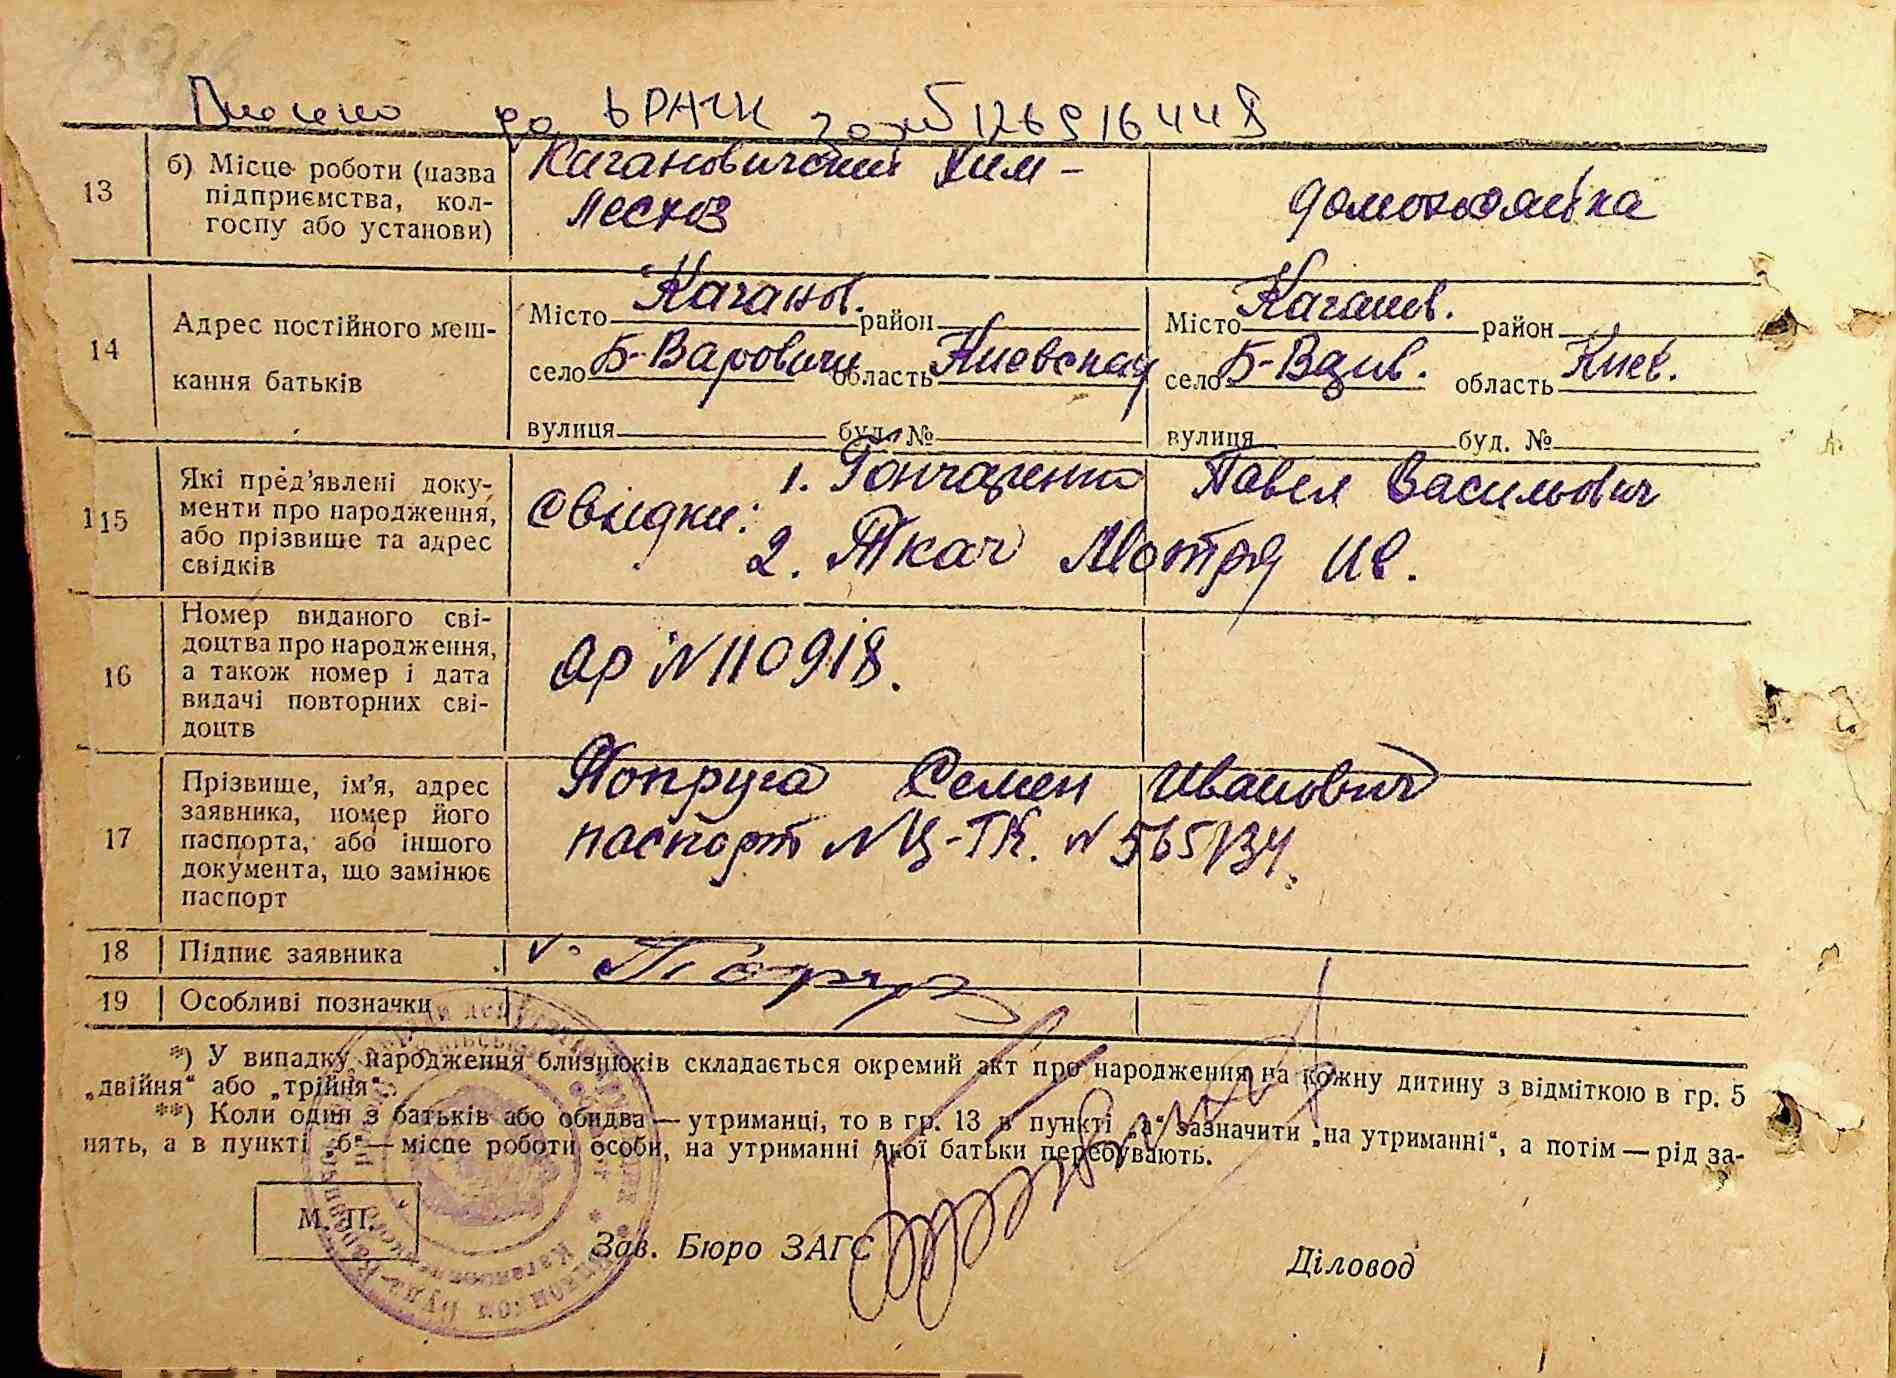 Внесено до ДРАЦС за № 126916448
13 б) Місце роботи (назва підприємства, кол-
госпу або установи)
Кагановичский Хим-
лесхоз
домохозяйка
14 Адрес постійного меш-
кання батьків
Місто Каганов. район
село Б-Варовичи область Киевская
вулиця буд. №
Місто Каганов. район
село Б-Вар. область Киев.
вулиця буд. №
15 Які пред'явлені доку-
менти про народження,
або прізвише та адрес
свідків
Свидки: 1. Гончаренко Павел Васильович
2. Ткач Мотря Ив.
16 Номер виданого сві-
доцтва про народження,
а також номер і дата
видачі повторних сві-
доцтв
№ 110918.
17 Прізвище, ім'я, адрес
заявника, номер його
паспорта, або іншого
документа, що замінює
паспорт
Попруга Семен Иванович
паспорт №
18 Підпис заявника
19 Особливі позначки
*) У випадку народження близнюків складається окремий акт про народження на кожну дитину з відміткою в гр. 5
„двійня“ або „трійня“.
**) Коли один з батьків або обидва — утриманці, то в гр. 13 в пункті „а“ зазначити „на утриманні“, а потім — рід за-
нять, а в пункті „б“ — місце роботи особи, на утриманні якої батьки перебувають.
М. П.
Зав. Бюро ЗАГС
Діловод